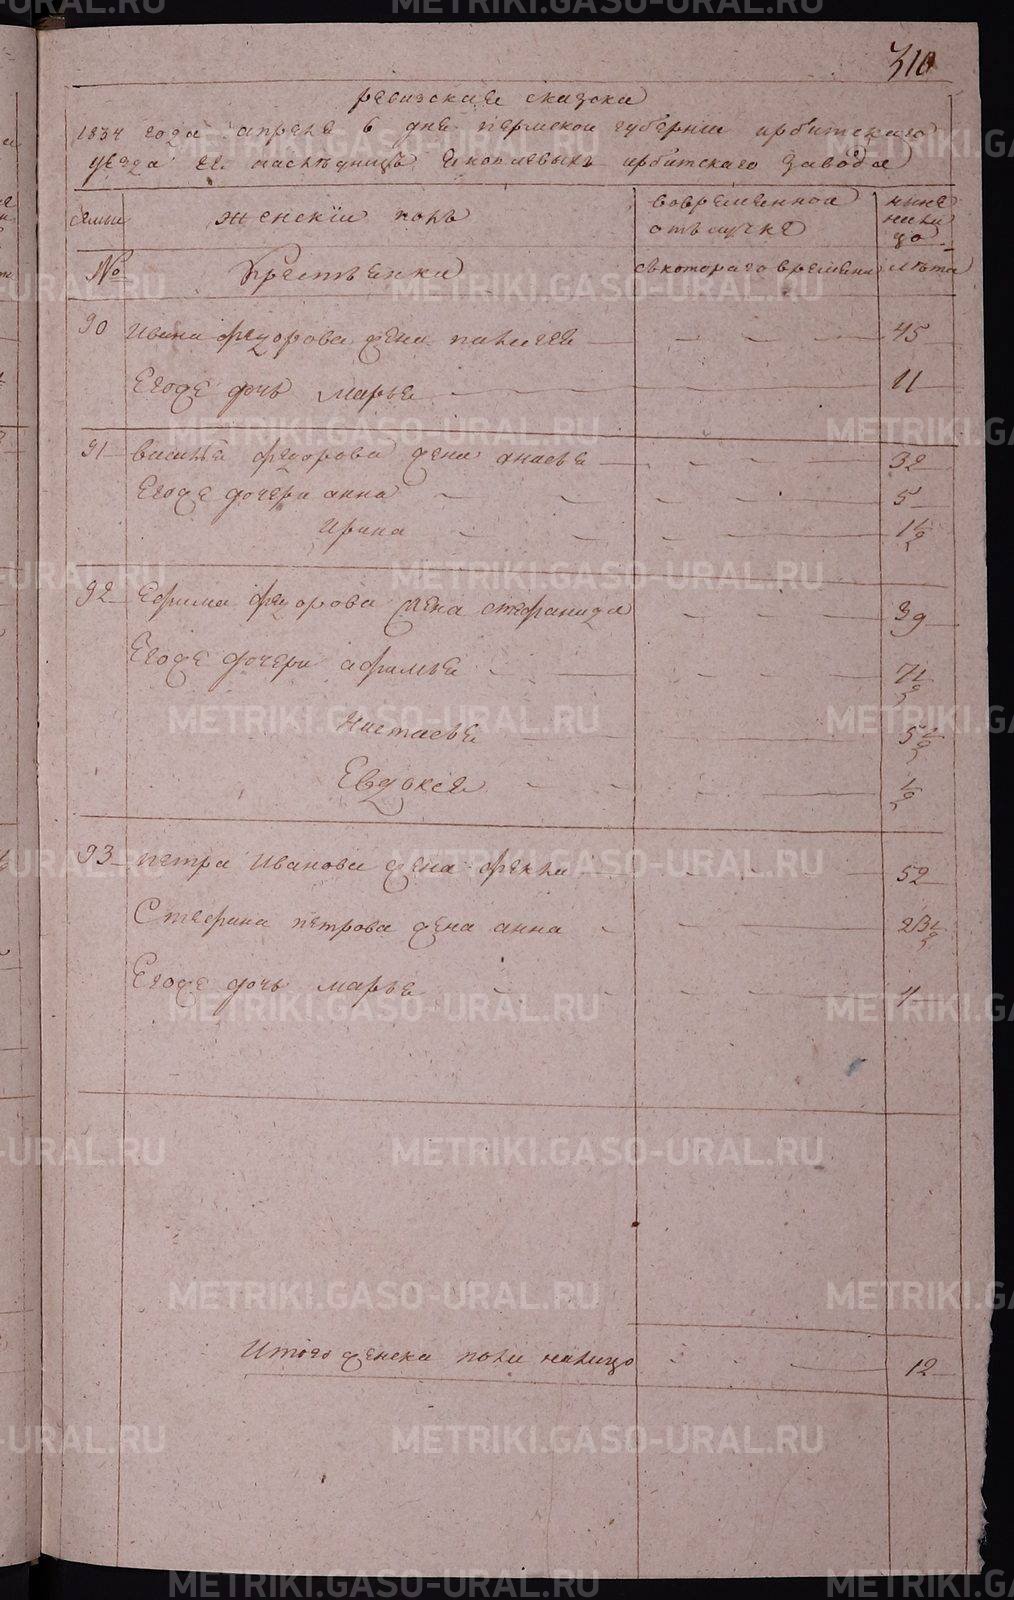 310
ревизская сказка
1834 года апреля в дня пермской губернии ирбитского
уезда гг. наследницъ ирбитскаго завода
семьи женскiй полъ вовременной отълучке ныне налицо
№ Крестьянка съкотораго времени лѣта
90 Ивана федорова жена палагея 45
Егоже дочь марья 11
91 василья федорова жена 32
Егоже дочери анна 5
Ирина 1 1/2
92 Ефима федорова жена стефанида 39
Егоже дочери афимья 7 1/2
Настасья 5 1/2
Евдокея 1/2
93 петра Иванова жена фекла 52
Стефана петрова жена анна 23 1/2
Егоже дочь марья 4
Итого женска пола налицо 12
METRIKI.GASO-URAL.RU